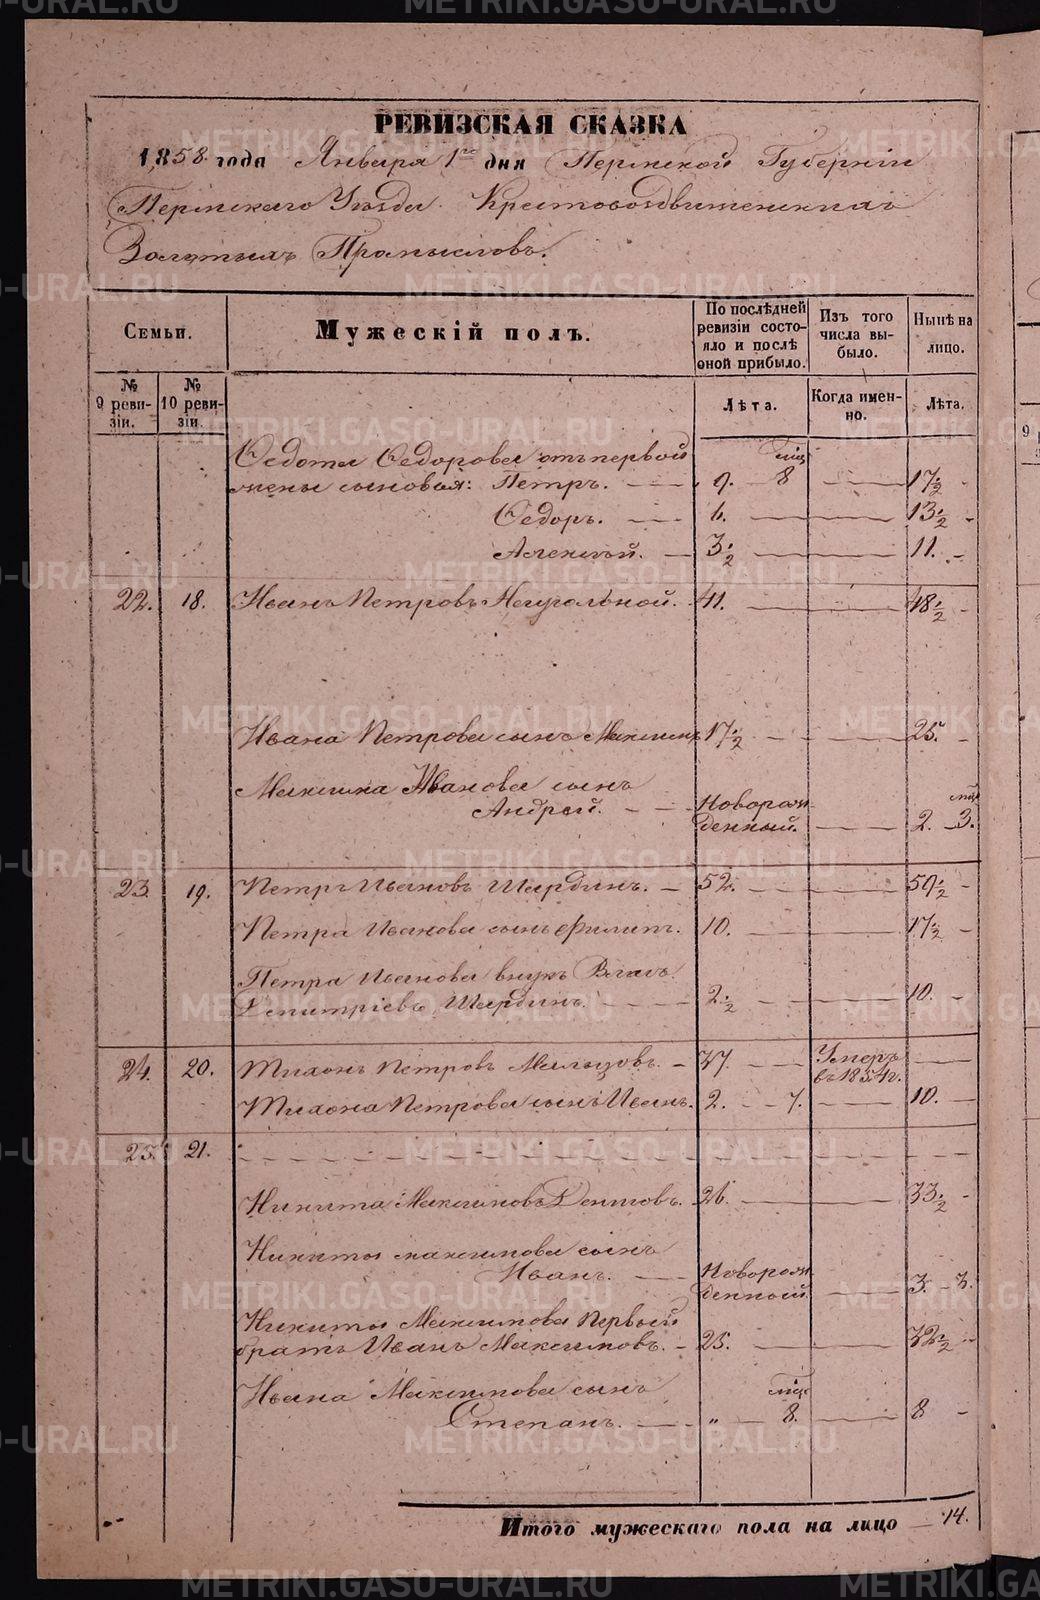 РЕВИЗСКАЯ СКАЗКА
1858 года Января 1го дня Пермской Губерніи
Пермскаго Уѣзда Крестовоздвиженскихъ
Золотыхъ Промысловъ.
Семьи.
Мужескій полъ.
По послѣдней ревизіи состояло и послѣ оной прибыло.
Изъ того числа выбыло.
Нынѣ на лицо.
№ 9 ревизіи.
№ 10 ревизіи.
Лѣта.
Когда именно.
Лѣта.
Федота Федорова отъ первой мцъ
жены сыновья: Петръ. 9. 8 17½
Федоръ. 6. 13½
Алексѣй. 3½ 11.
22. 18. Иванъ Петровъ Неугольной. 41. 48½
Ивана Петрова сынъ Максимъ 17½ 25.
Максима Иванова сынъ
Андрей. Новорожденный. 2. 3. мцъ
23. 19. Петръ Ивановъ Шардинъ. 52. 59½
Петра Иванова сынъ Филипъ. 10. 17½
Петра Иванова внукъ Власъ
Дмитріевъ Шардинъ. 2½ 10.
24. 20. Тихонъ Петровъ Мальцовъ. 37. Умеръ въ 1854 г.
Тихона Петрова сынъ Иванъ. 2. 7. 10.
25. 21.
Никита Максимовъ Денисовъ. 26. 33½
Никиты Максимова сынъ
Иванъ. Новорожденный. 3. 3.
Никиты Максимова Первый
братъ Иванъ Максимовъ. 25. 32½
Ивана Максимова сынъ мцъ
Степанъ. „ 8. 8
Итого мужескаго пола на лицо 14.
METRIKI.GASO-URAL.RU